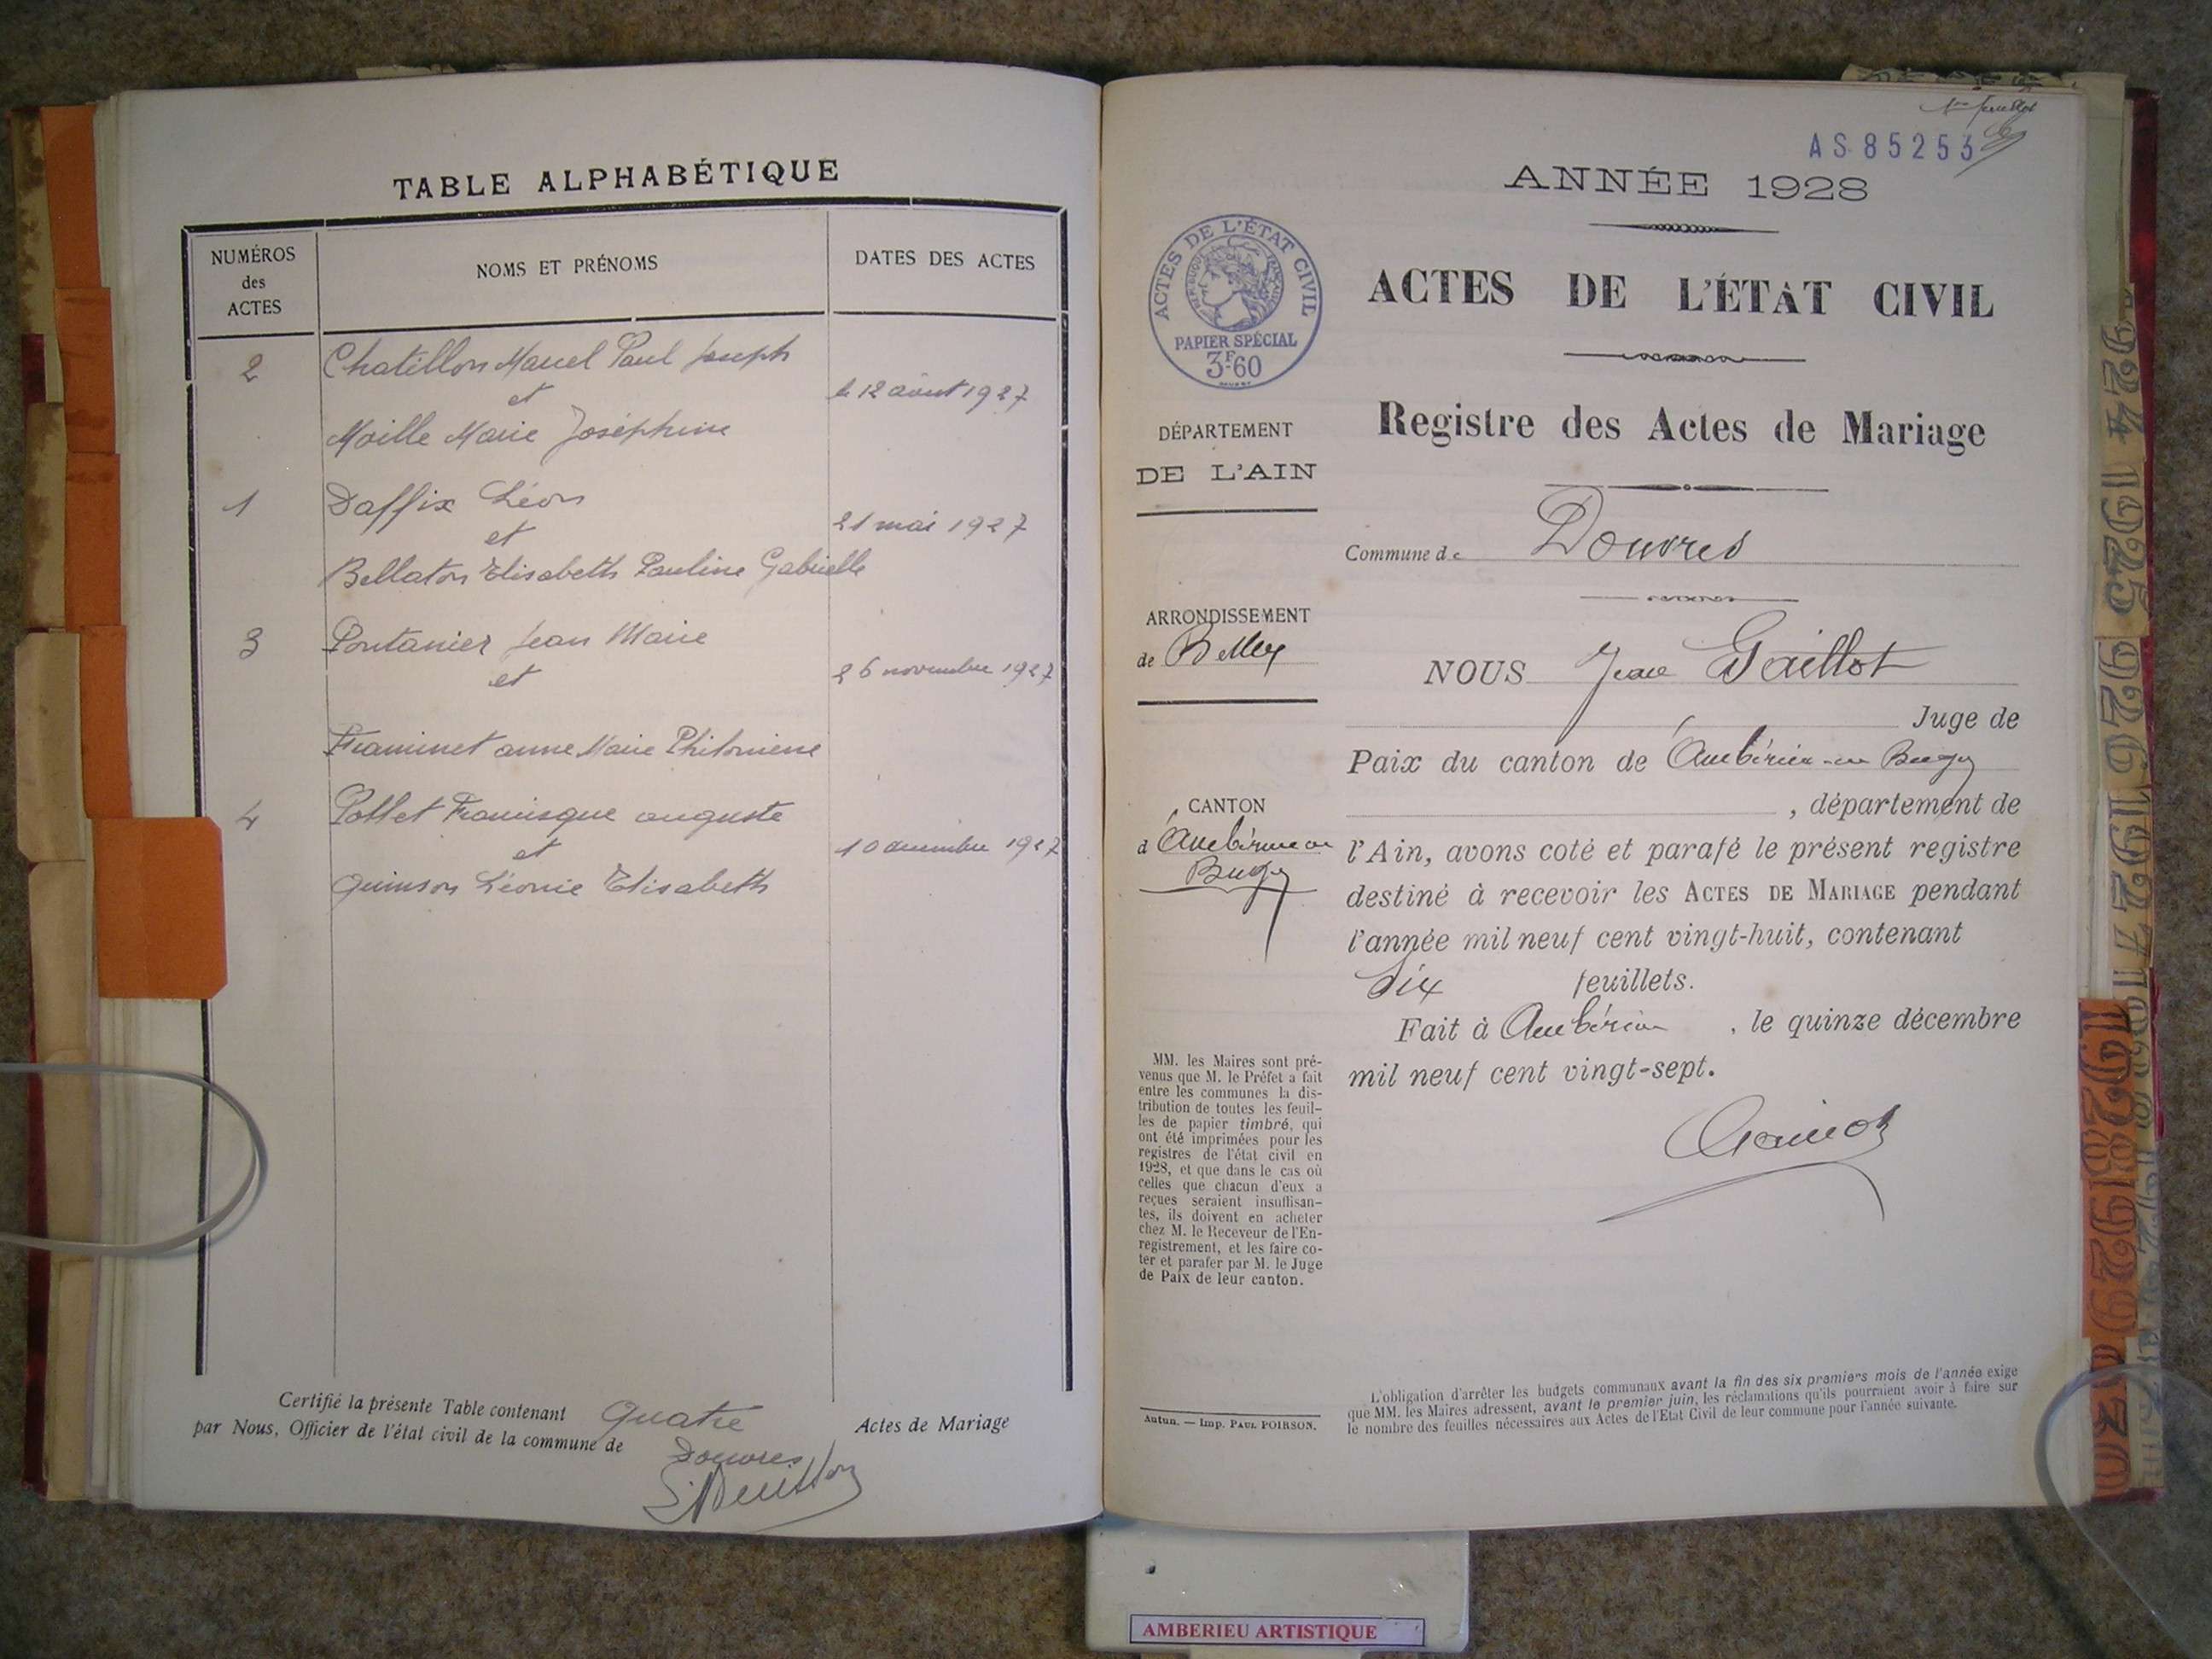 TABLE ALPHABÉTIQUE
NUMÉROS
des
ACTES
NOMS ET PRÉNOMS
DATES DES ACTES
2
Chatillon Marcel Paul Joseph
et
le 12 août 1927
Moille Marie Joséphine
1
Daffix Léon
et
21 mai 1927
Bellaton Elisabeth Pauline Gabrielle
3
Pontanier Jean Marie
et
26 novembre 1927
Framinet anne Marie Philomène
4
Pollet Francisque auguste
et
10 décembre 1927
Quinson Léonie Elisabeth
Certifié la présente Table contenant Quatre Actes de Mariage
par Nous, Officier de l'état civil de la commune de Douvres
AS 85253
ANNÉE 1928
ACTES DE L'ÉTAT CIVIL
RÉPUBLIQUE FRANÇAISE
PAPIER SPÉCIAL
3F60
ACTES DE L'ÉTAT CIVIL
Registre des Actes de Mariage
DÉPARTEMENT
DE L'AIN
Commune de Douvres
ARRONDISSEMENT
de Belley
NOUS Jean Gaillot
Juge de
Paix du canton de Ambérieu-en Bugey
, département de
CANTON
d'Ambérieu en
Bugey
l'Ain, avons coté et parafé le présent registre
destiné à recevoir les ACTES DE MARIAGE pendant
l'année mil neuf cent vingt-huit, contenant
six feuillets.
Fait à Ambérieu , le quinze décembre
mil neuf cent vingt-sept.
MM. les Maires sont pré-
venus que M. le Préfet a fait
entre les communes la dis-
tribution de toutes les feuil-
les de papier timbré, qui
ont été imprimées pour les
registres de l'état civil en
1928, et que dans le cas où
celles que chacun d'eux a
reçues seraient insuffisan-
tes, ils doivent en acheter
chez M. le Receveur de l'En-
registrement, et les faire co-
ter et parafer par M. le Juge
de Paix de leur canton.
Autun. — Imp. PAUL POIRSON.
L'obligation d'arrêter les budgets communaux avant la fin des six premiers mois de l'année exige
que MM. les Maires adressent, avant le premier juin, les réclamations qu'ils pourraient avoir à faire sur
le nombre des feuilles nécessaires aux Actes de l'Etat Civil de leur commune pour l'année suivante.
1924
1925
1926
1927
1928
1929
AMBERIEU ARTISTIQUE